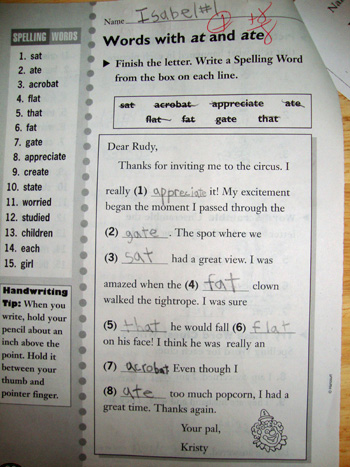 Name Isabel #1
SPELLING WORDS
1. sat
2. ate
3. acrobat
4. flat
5. that
6. fat
7. gate
8. appreciate
9. create
10. state
11. worried
12. studied
13. children
14. each
15. girl
Handwriting
Tip: When you
write, hold your
pencil about an
inch above the
point. Hold it
between your
thumb and
pointer finger.
Words with at and ate
▶ Finish the letter. Write a Spelling Word
from the box on each line.
sat acrobat appreciate ate
flat fat gate that
Dear Rudy,
Thanks for inviting me to the circus. I
really (1) appreciate it! My excitement
began the moment I passed through the
(2) gate. The spot where we
(3) sat had a great view. I was
amazed when the (4) fat clown
walked the tightrope. I was sure
(5) that he would fall (6) flat
on his face! I think he was really an
(7) acrobat Even though I
(8) ate too much popcorn, I had a
great time. Thanks again.
Your pal,
Kristy